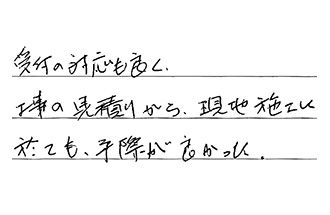 受付の対応も良く、
工事の見積りから、現地施工に
於ても、手際が良かった。